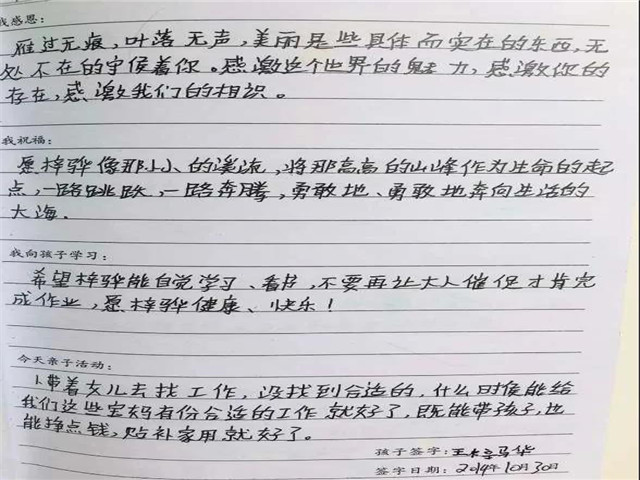 我感恩:
雁过无痕，叶落无声，美丽是些具体而实在的东西，无
处不在的守候着你。感激这个世界的魅力，感激你的
存在，感激我们的相识。
我祝福:
愿梓骅像那小小的溪流，将那高高的山峰作为生命的起
点，一路跳跃，一路奔腾，勇敢地、勇敢地奔向生活的
大海.
我向孩子学习:
希望梓骅能自觉学习、看书，不要再让大人催促才肯完
成作业，愿梓骅健康、快乐！
今天亲子活动:
1.带着女儿去找工作，没找到合适的，什么时候能给
我们这些宝妈有份合适的工作就好了，既能带孩子，也
能挣点钱，贴补家用就好了。
孩子签字:
签字日期: 2019年10月30日